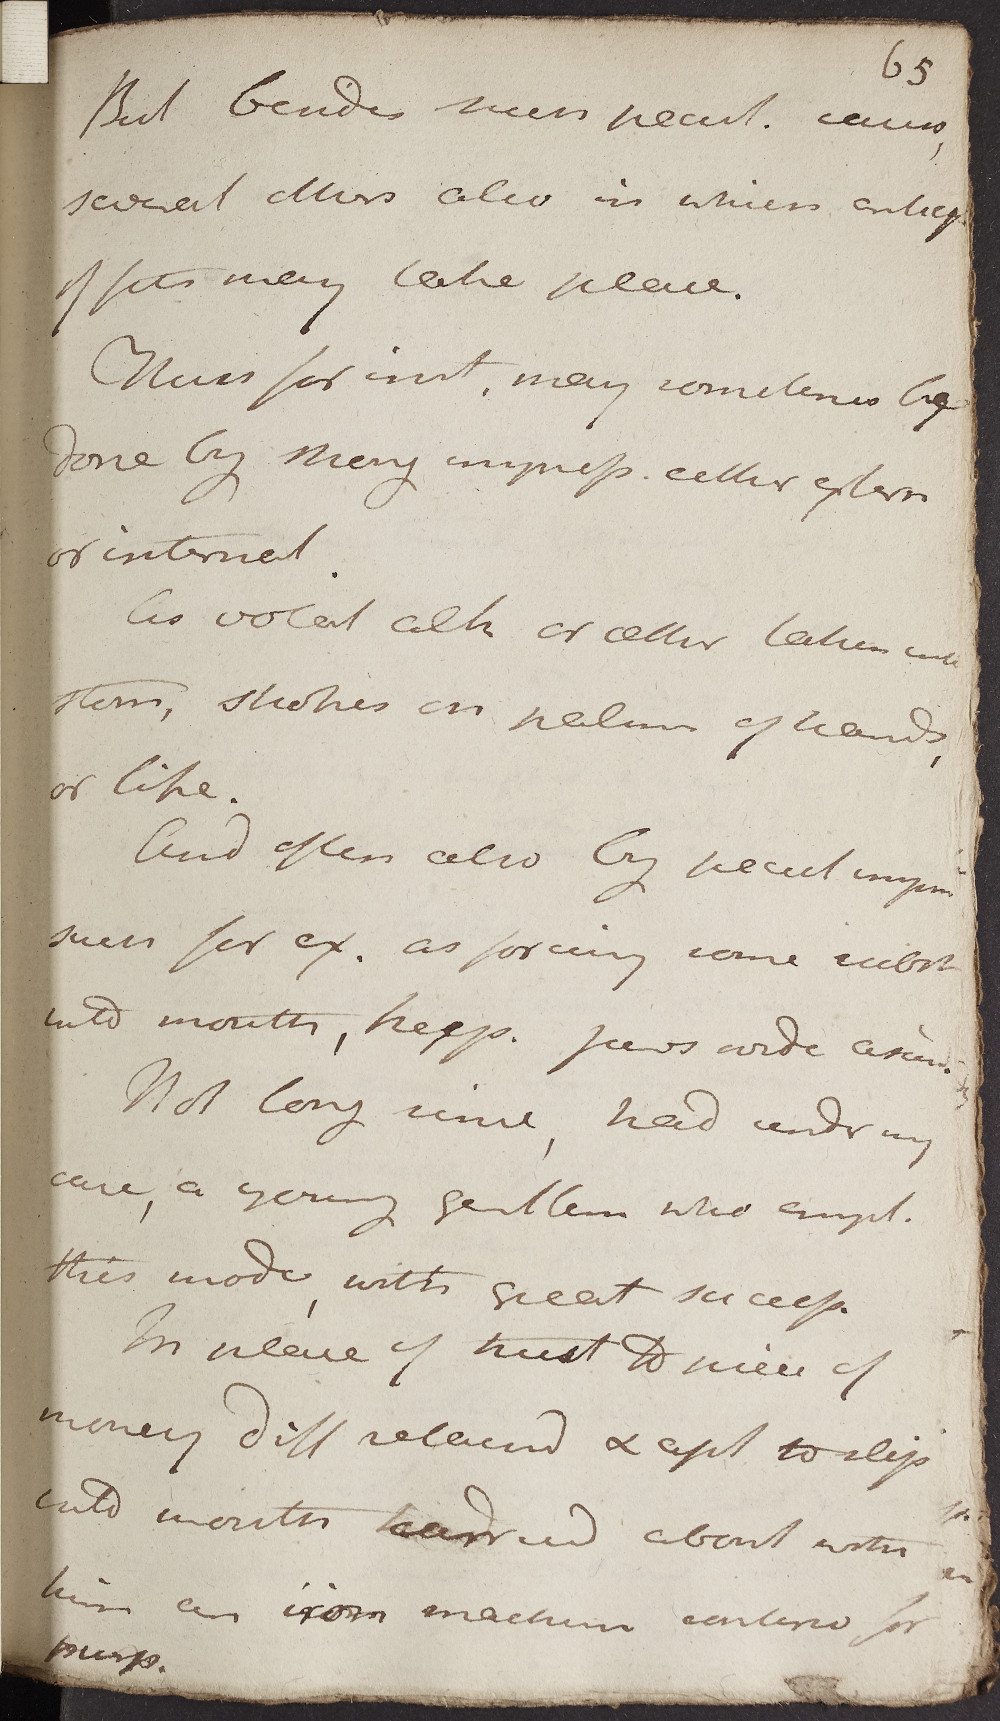 65
But besides such pecul. causes,
several others also in which anticip.
of fits may take place.
Thus for inst, may sometimes be
done by strong impress. either extern
or internal.
As volat alk or æther taken into
stom, strokes on palms of hands,
or like.
And often also by pecul impress
such for ex. as forcing some subst
into mouth, keep. jaws wide asun.
Not long since, had under my
care, a young gentlem who empl.
this mode, with great success.
In place of trust to piece of
money diff retained & apt to slip
into mouth carried about with
him an iron machine contriv for
purp.